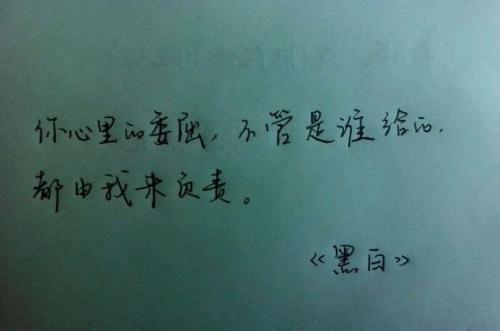 你心里的委屈，不管是谁给的，
都由我来负责。
《黑白》